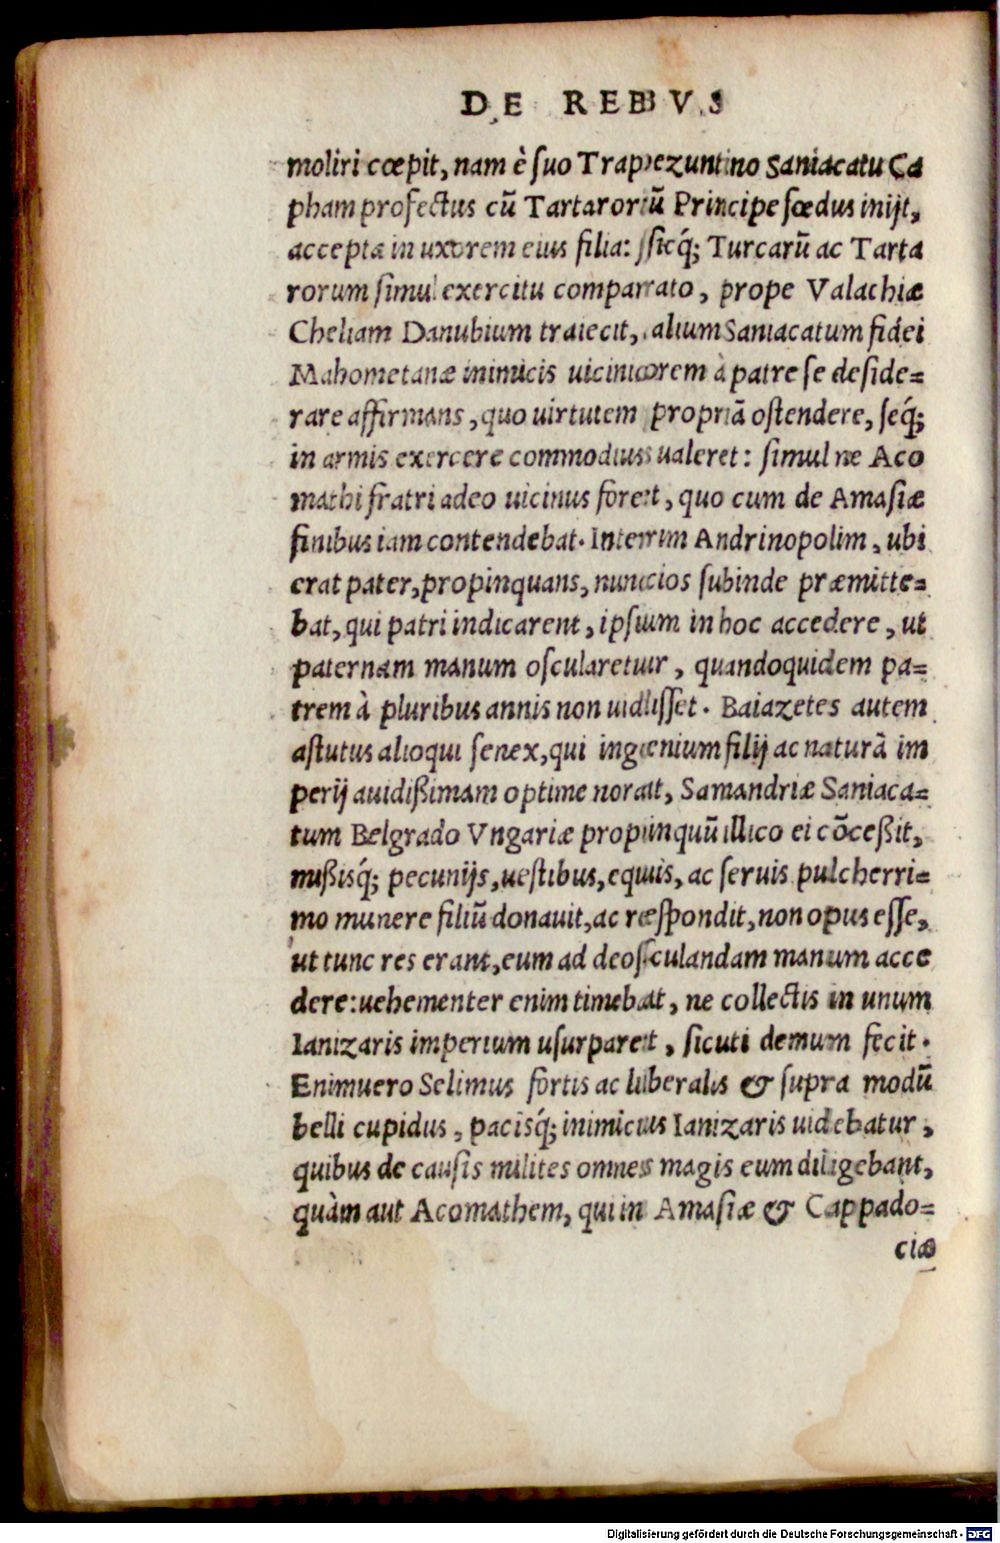 DE REBVS
moliri cœpit, nam è ſuo Trapezuntino Saniacatu Ca
pham profectus cū Tartarorū Principe fœdus inijt,
accepta in uxorem eius filia: ſicq́; Turcarū ac Tarta
rorum ſimul exercitu comparato, prope Valachiæ
Cheliam Danubium traiecit, alium Saniacatum fidei
Mahometanæ inimicis uiciniorem à patre ſe deſide=
rare affirmans, quo uirtutem propriā oſtendere, ſeq́;
in armis exercere commodius ualeret: ſimul ne Aco
mathi fratri adeo uicinus foret, quo cum de Amaſiæ
finibus iam contendebat. Interim Andrinopolim, ubi
erat pater, propinquans, nuncios ſubinde præmitte=
bat, qui patri indicarent, ipſum in hoc accedere, ut
paternam manum oſcularetur, quandoquidem pa=
trem à pluribus annis non uidiſſet. Baiazetes autem
aſtutus alioqui ſenex, qui ingenium filij ac naturā im
perij auidißimam optime norat, Samandriæ Saniaca=
tum Belgrado Vngariæ propinquū illico ei cōceßit,
mißisq́; pecunijs, ueſtibus, equis, ac ſeruis pulcherri=
mo munere filiū donauit, ac reſpondit, non opus eſſe,
ut tunc res erant, eum ad deoſculandam manum acce
dere: uehementer enim timebat, ne collectis in unum
Ianizaris imperium uſurparet, ſicuti demum fecit.
Enimuero Selimus fortis ac liberalis & ſupra modū
belli cupidus, pacisq́; inimicus Ianizaris uidebatur,
quibus de cauſis milites omnes magis eum diligebant,
quàm aut Acomathem, qui in Amaſiæ & Cappado=
ciæ
Digitalisierung gefördert durch die Deutsche Forschungsgemeinschaft - DFG